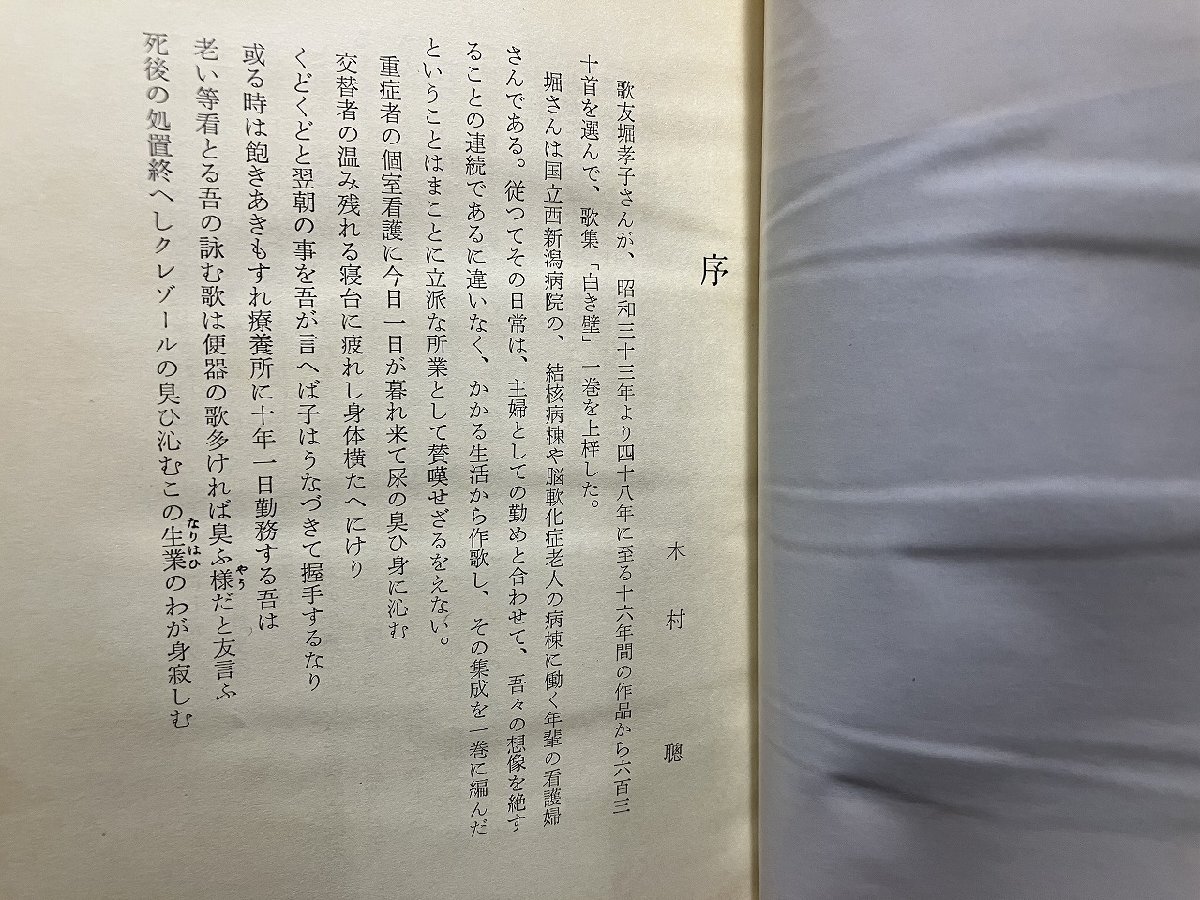 序
木村聰
歌友堀孝子さんが、昭和三十三年より四十八年に至る十六年間の作品から六百三
十首を選んで、歌集「白き壁」一巻を上梓した。
堀さんは国立西新潟病院の、結核病棟や脳軟化症老人の病棟に働く年輩の看護婦
さんである。従つてその日常は、主婦としての勤めと合わせて、吾々の想像を絶す
ることの連続であるに違いなく、かかる生活から作歌し、その集成を一巻に編んだ
ということはまことに立派な所業として賛嘆せざるをえない。
重症者の個室看護に今日一日が暮れ来て尿の臭ひ身に沁む
交替者の温み残れる寝台に疲れし身体横たへにけり
くどくどと翌朝の事を吾が言へば子はうなづきて握手するなり
或る時は飽きあきもすれ療養所に十年一日勤務する吾は
老い等看とる吾の詠む歌は便器の歌多ければ臭ふ様だと友言ふ
やう
死後の処置終へしクレゾールの臭ひ沁むこの生業のわが身寂しむ
なりはひ